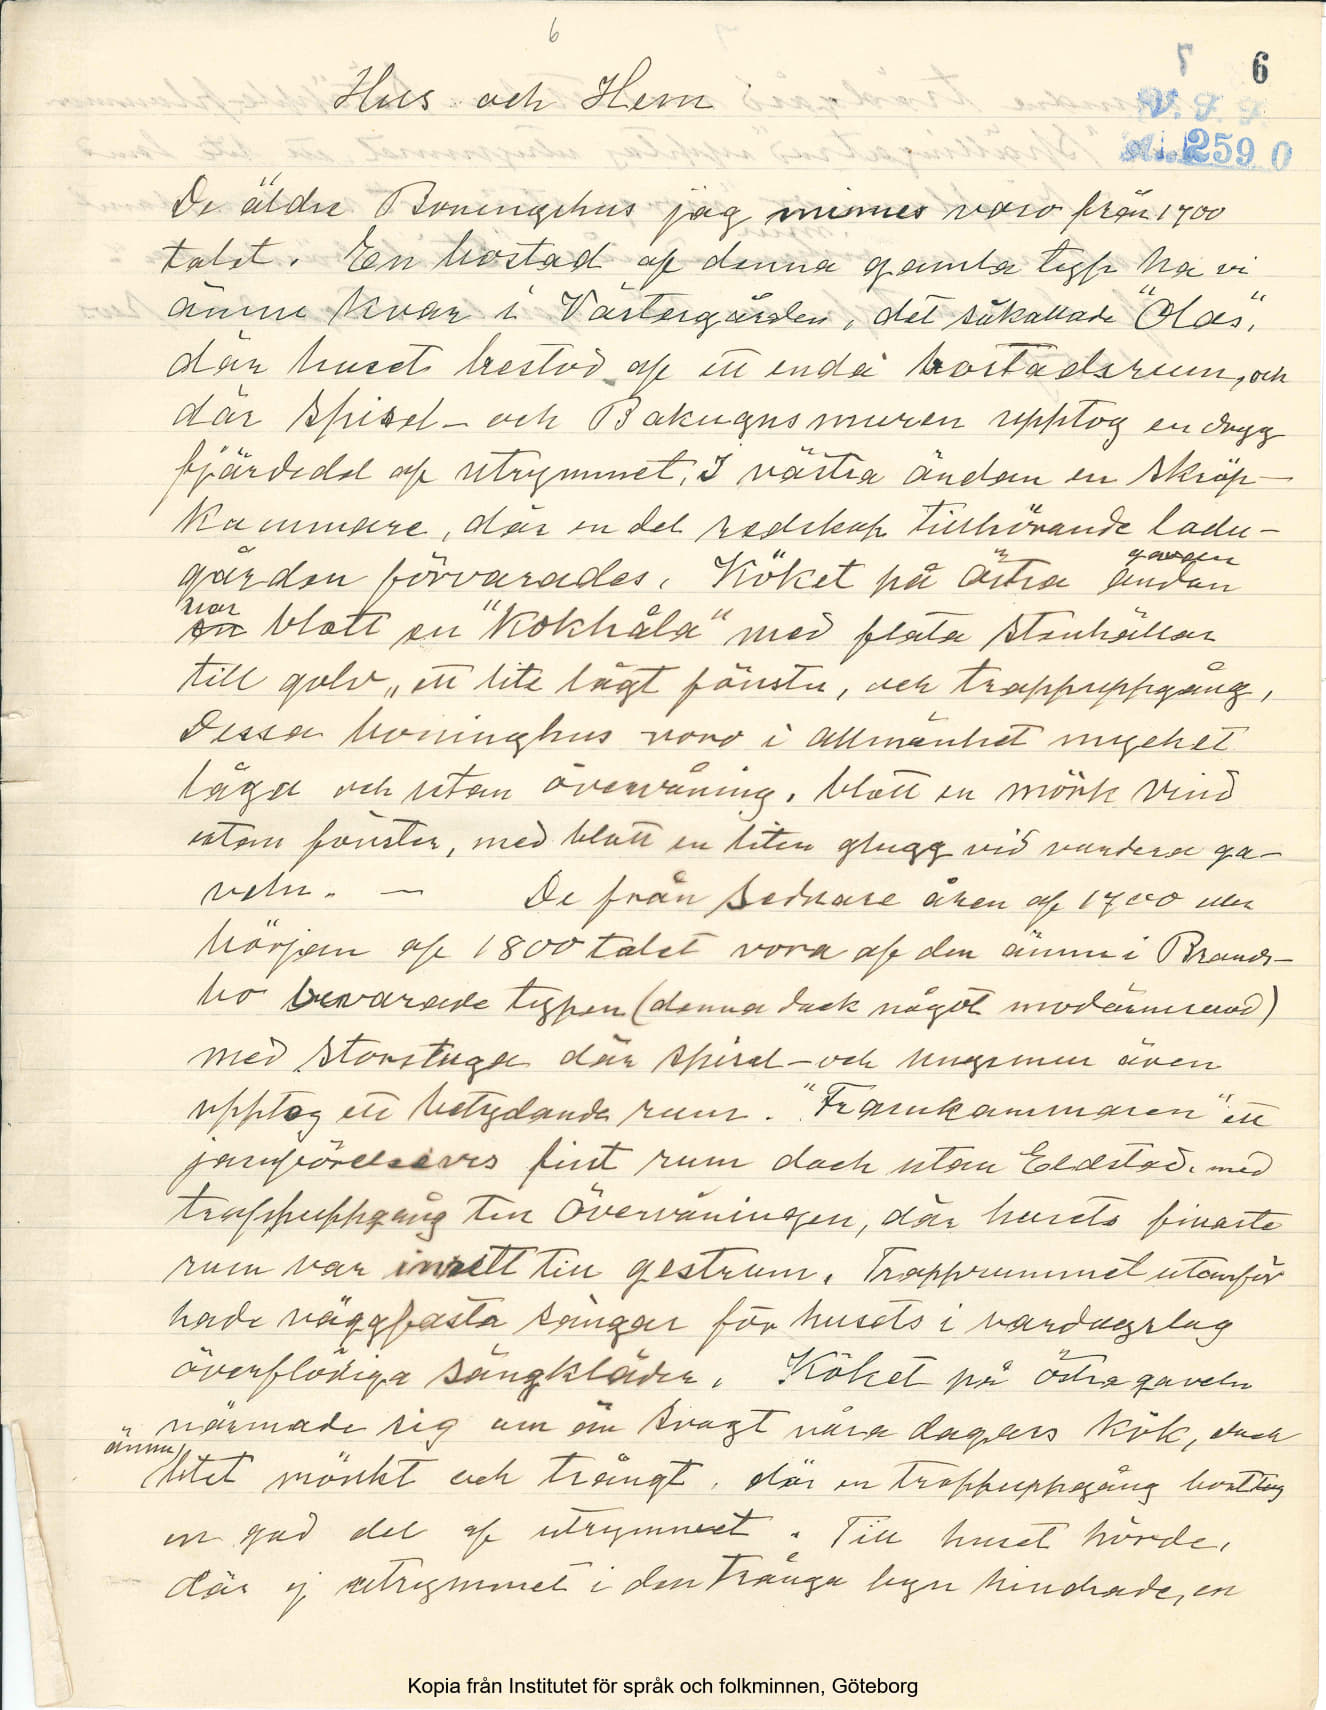 6
6
Hus och Hem
V. F. F.
2590
De äldre Boningshus jag minnes voro från 1700
talet. En bostad af denna gamla typ ha vi
ännu kvar i Västergården, det såkallade "Olas",
där huset bestod af ett enda bostadsrum, och
där spisel- och Bakugnsmuren upptog en dryg
fjärdedel af utrymmet. I västra ändan en skräp-
kammare, där en del redskap tillhörande ladu-
gården förvarades. Köket på östra ändan
gaveln
var
blott en "Kokhåla" med flata stenhällar
till golv, ett lite lågt fönster, och trappuppgång,
Dessa boninghus voro i allmänhet mycket
låga och utan övervåning, blott en mörk vind
utan fönster, med blott en liten glugg vid vardera ga-
veln. — De från sednare åren af 1700 eller
början af 1800 talet vora af den ännu i Brands-
bo bevarade typen (denna dock något modärniserad)
med storstuga där spisel- och ungsmur även
upptog ett betydande rum. "Framkammaren" ett
jämförelsevis fint rum dock utan Eldstad. med
trappuppgång till Övervåningen, där husets finaste
rum var inrett till gestrum. Trapprummet utanför
hade väggfasta sängar för husets i vardagslag
överflödiga sängkläder. Köket på östra gaveln
närmade sig om än svagt våra dagars kök, dock
ännu
litet mörkt och trångt. där en trappuppgång borttog
en god del af utrymmet. Till huset hörde,
där ej utrymmet i den trånga byn hindrade, en
Kopia från Institutet för språk och folkminnen, Göteborg